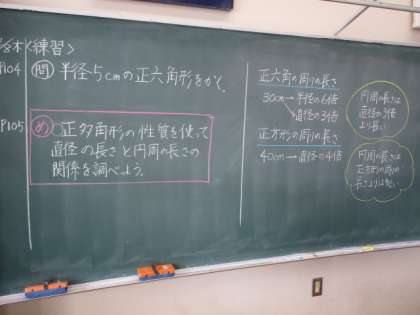 <練習>
P104
問 半径5cmの正六角形をかく。
P105
め 正多角形の性質を使って
直径の長さと円周の長さの
関係を調べよう。
正六角の周りの長さ
30cm→半径の6倍
直径の3倍
正方形の周りの長さ
40cm→直径の4倍
円周の長さは
直径の3倍
より長い
円周の長さは
正方形の周りの
長さよりは短い